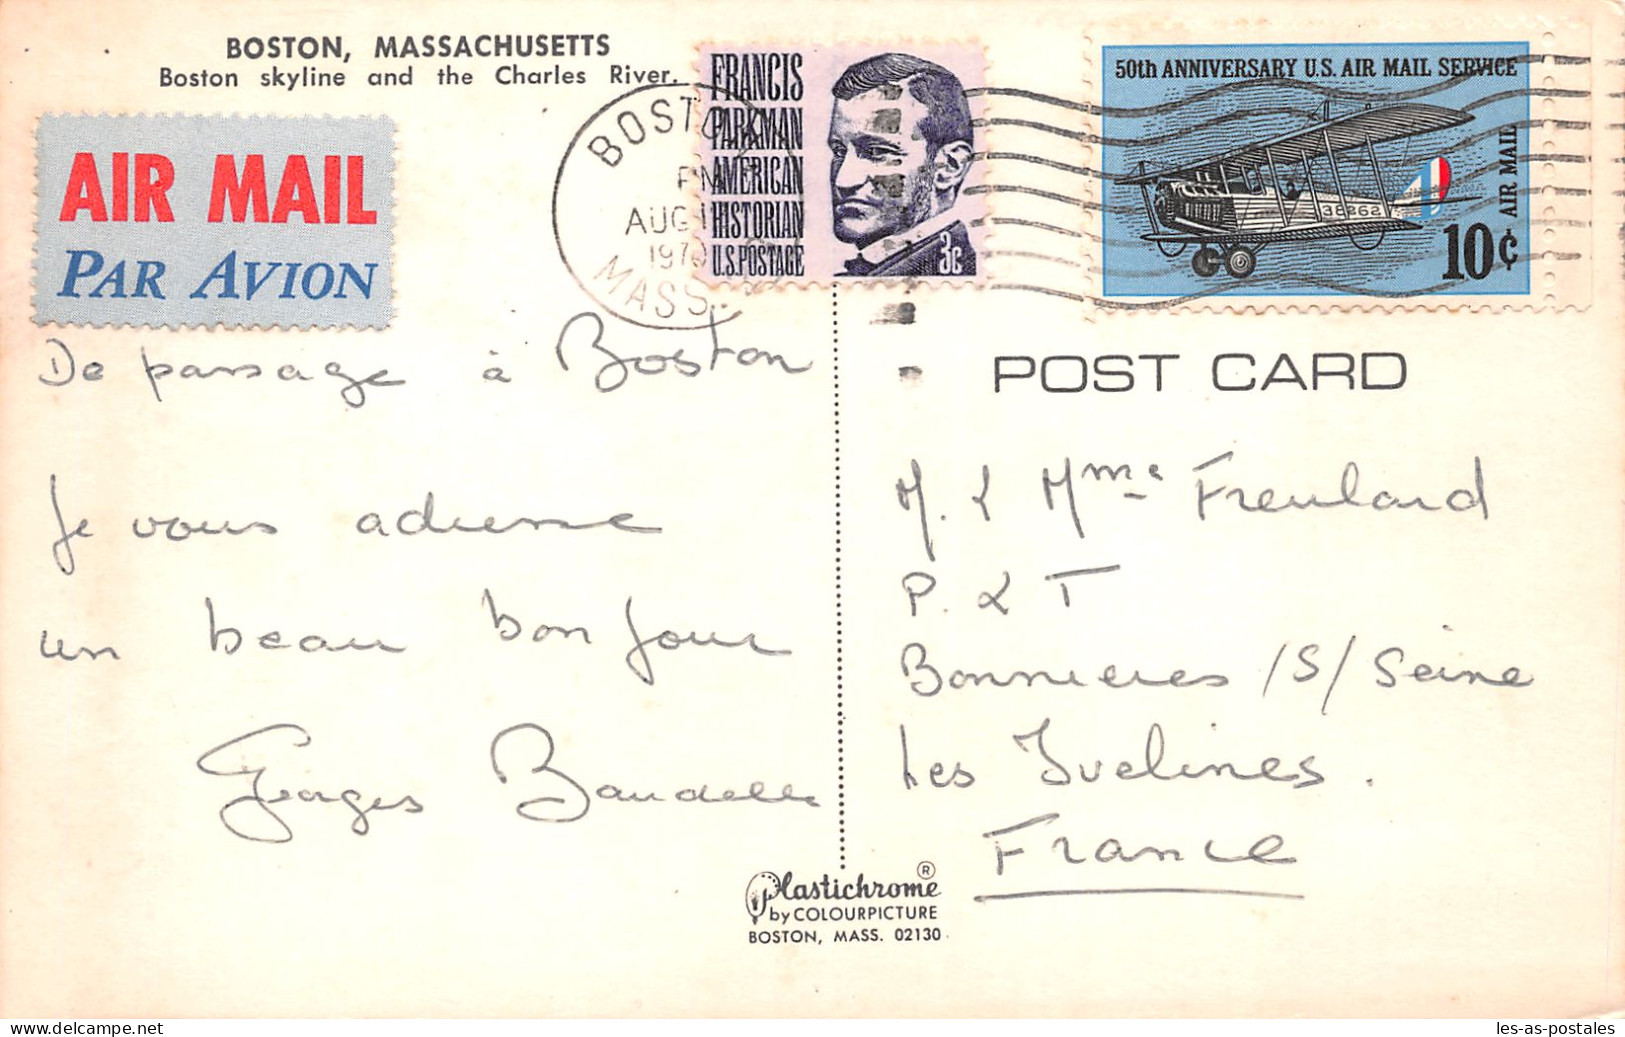 BOSTON, MASSACHUSETTS
Boston skyline and the Charles River.
AIR MAIL
PAR AVION
BOSTON
PM
AUG 1
197
MASS.
FRANCIS
PARKMAN
AMERICAN
HISTORIAN
U.S. POSTAGE
3c
50th ANNIVERSARY U.S. AIR MAIL SERVICE
38262
AIR MAIL
10¢
De passage à Boston
Je vous adresse
un beau bonjour
Georges
POST CARD
M. & Mme Freulard
P. & T
Bonnieres /S/ Seine
Les Yvelines.
France
Plastichrome®
by COLOURPICTURE
BOSTON, MASS. 02130
delcampe.net
les-as-postales